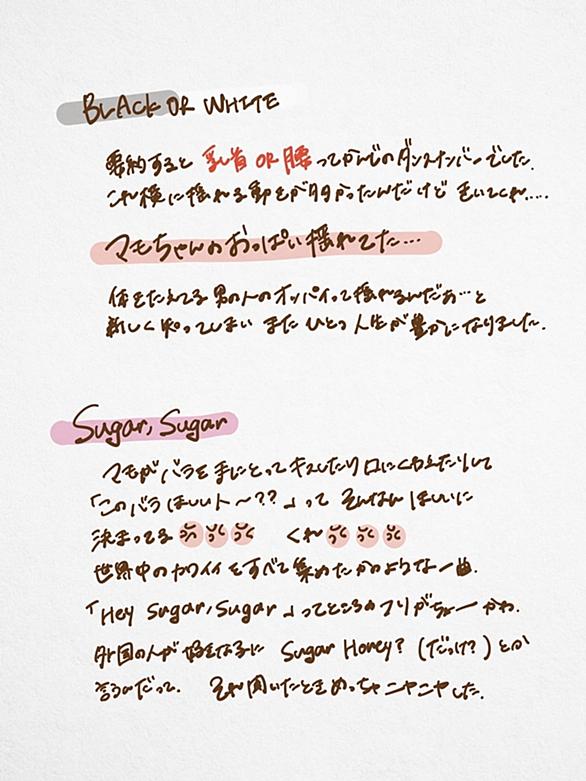 BLACK OR WHITE
要約すると 乳首 OR 腰 ってかんじのダンスナンバーでした.
これ横に揺れる動きが多かったんだけど きいてくれ.....
マモちゃんのおっぱい揺れてた...
体きたえてる 男の人のオッパイって揺れるんだぁ…と
新しく知ってしまい またひとつ人生が豊かになりました.
Sugar, Sugar
マモが バラを手にとって キスしたり口にくわえたりして
「このバラ ほしい人〜??」って そんなん ほしいに
決まってる くれ
世界中のカワイイをすべて集めたかのような一曲.
「Hey Sugar, Sugar」ってところのフリがちょーかわ.
外国の人が 好きな子に Sugar Honey? (だっけ?) とか
言うのだって. それ聞いたときめっちゃニヤニヤした.